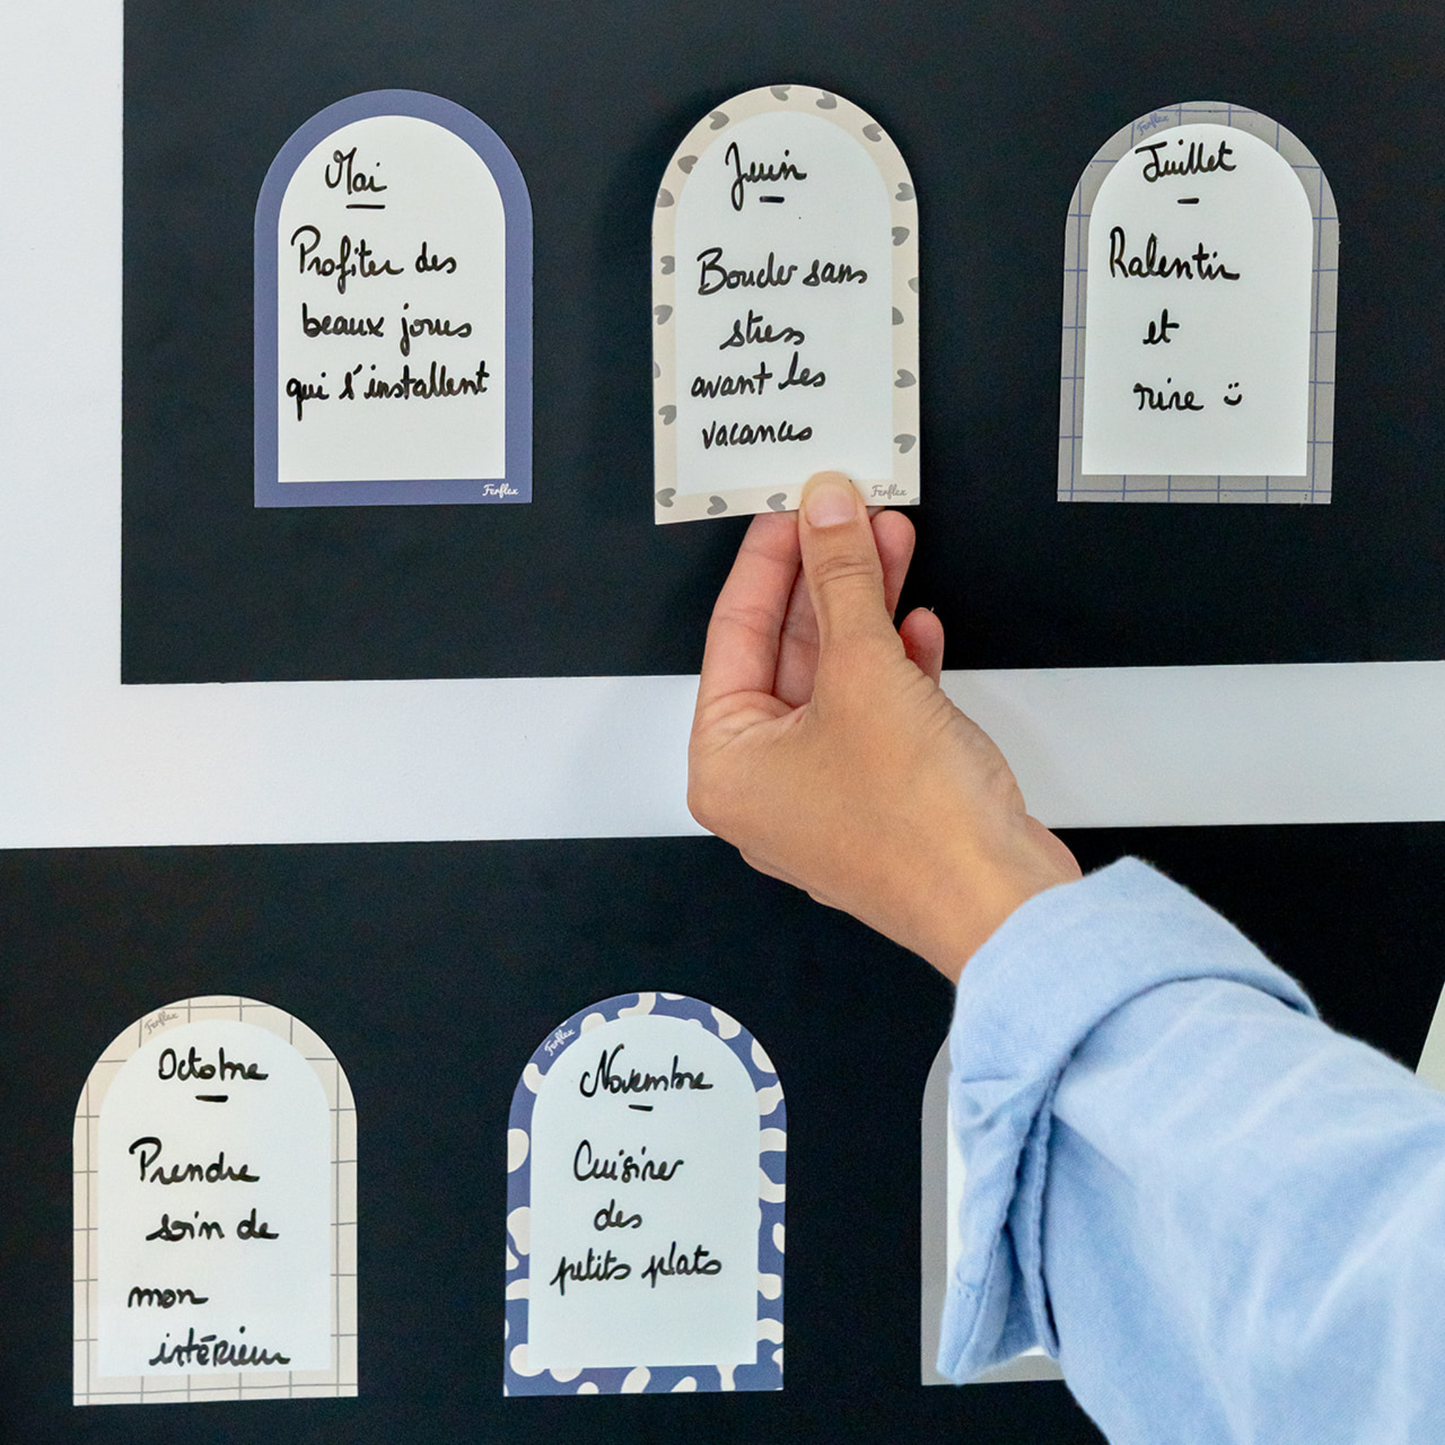 Mai
Profiter des
beaux jours
qui s'installent
Ferflex
Juin
Boucler sans
stress
avant les
vacances
Ferflex
Ferflex
Juillet
Ralentir
et
rire
Ferflex
Octobre
Prendre
soin de
mon
intérieur
Ferflex
Novembre
Cuisiner
des
petits plats